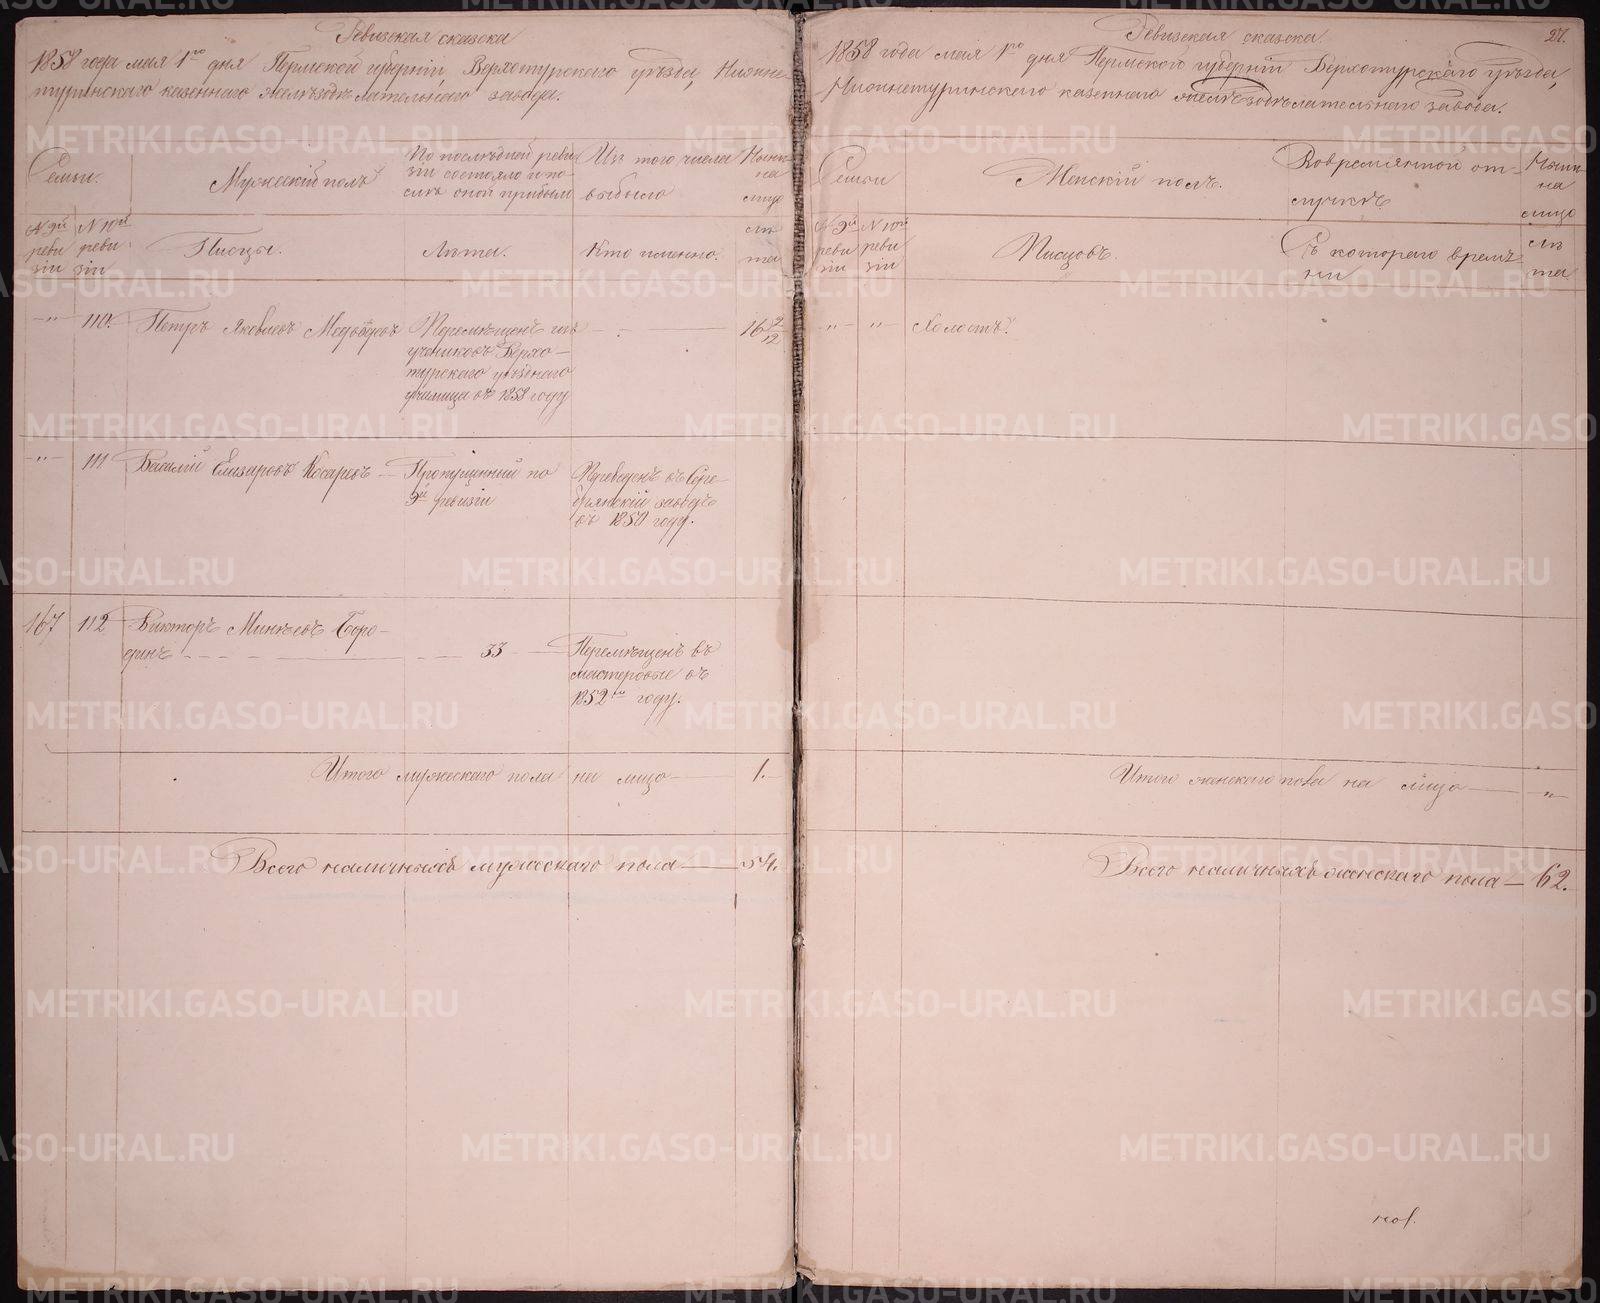 Ревизская сказка
1858 года мая 1го дня Пермской губернiи Верхотурского уѣзда, Нижне-
туринскаго казеннаго желѣзодѣлательнаго завода.
Семьи.
Мужескiй полъ
По послѣдней реви
зiи состояло и по-
слѣ оной прибыло
Изъ того числа
выбыло
Нынѣ
на
лицо
№ 9й
реви
зiи
№ 10й
реви
зiи
Писцы.
Лѣта.
Кто именно.
лѣ
та
—"— 110. Петръ Яковлевъ Медвѣдевъ
Перемѣщенъ изъ
учениковъ Верхо-
турскаго уѣзднаго
училища въ 1858 году
16 9/12
—"— 111 Василiй Елизаровъ Косаревъ
Пропущенный по
9й ревизiи
Переведенъ въ Сере-
брянскiй заводъ
въ 1850 году.
167 112 Викторъ Минѣевъ Боро-
динъ — 33
Перемѣщенъ въ
мастеровые въ
1852мъ году.
Итого мужескаго пола на лицо — 1.
Всего наличныхъ мужескаго пола — 54.
27.
Ревизская сказка
1858 года мая 1го дня Пермской губернiи Верхотурскаго уѣзда,
Нижнетуринскаго казеннаго желѣзодѣлательнаго завода.
Семьи
Женскiй полъ.
Во временной от-
лучкѣ
Нынѣ
на
лицо
№ 9й
реви
зiи
№ 10й
реви
зiи
Писцовъ.
Съ котораго време
ни
лѣ
та
—"— —"— Холостъ.
Итого женскаго пола на лицо — "—
Всего наличныхъ женскаго пола — 62.
METRIKI.GASO-URAL.RU